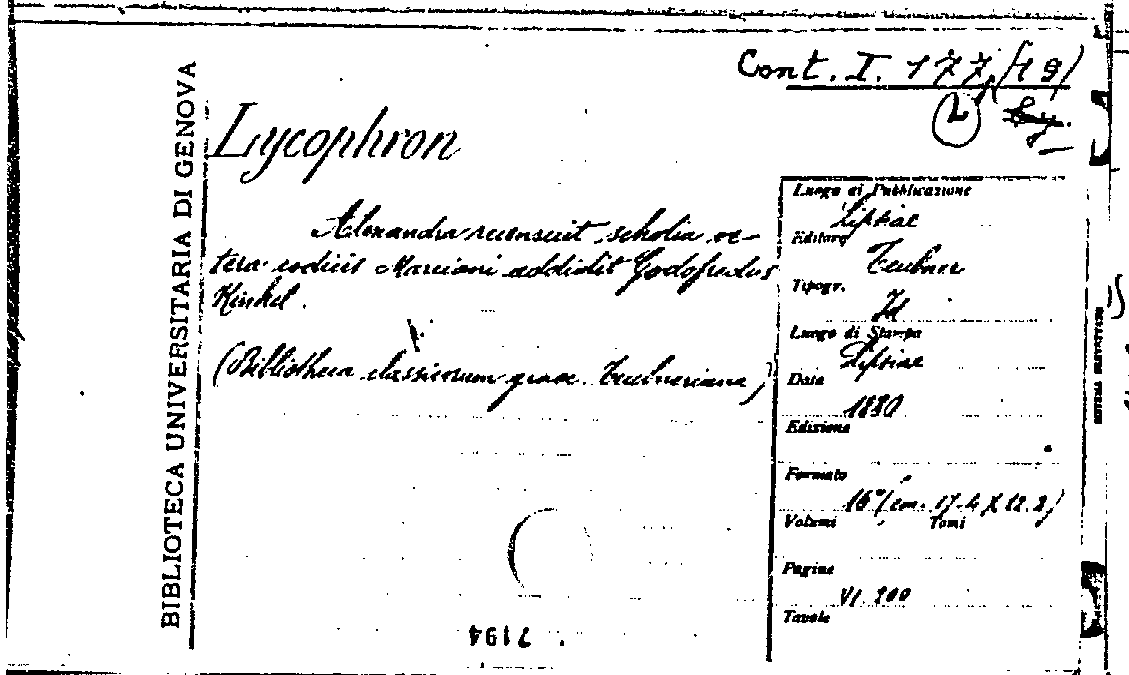 Cont. I. 177,/19/
2
BIBLIOTECA UNIVERSITARIA DI GENOVA
Lycophron
Alexandra recensuit, scholia ve-
tera codicis Marciani addidit Godofredus
Kinkel.
(Bibliotheca classicorum graec. Teubneriana)
Luogo di Pubblicazione
Lipsiae
Editore
Teubner
Tipogr.
Id
Luogo di Stampa
Lipsiae
Data
1880
Edizione
Formato
16° (cm. 17.4 X 12.2)
Volumi Tomi
Pagine
VI. 200
Tavole
7194